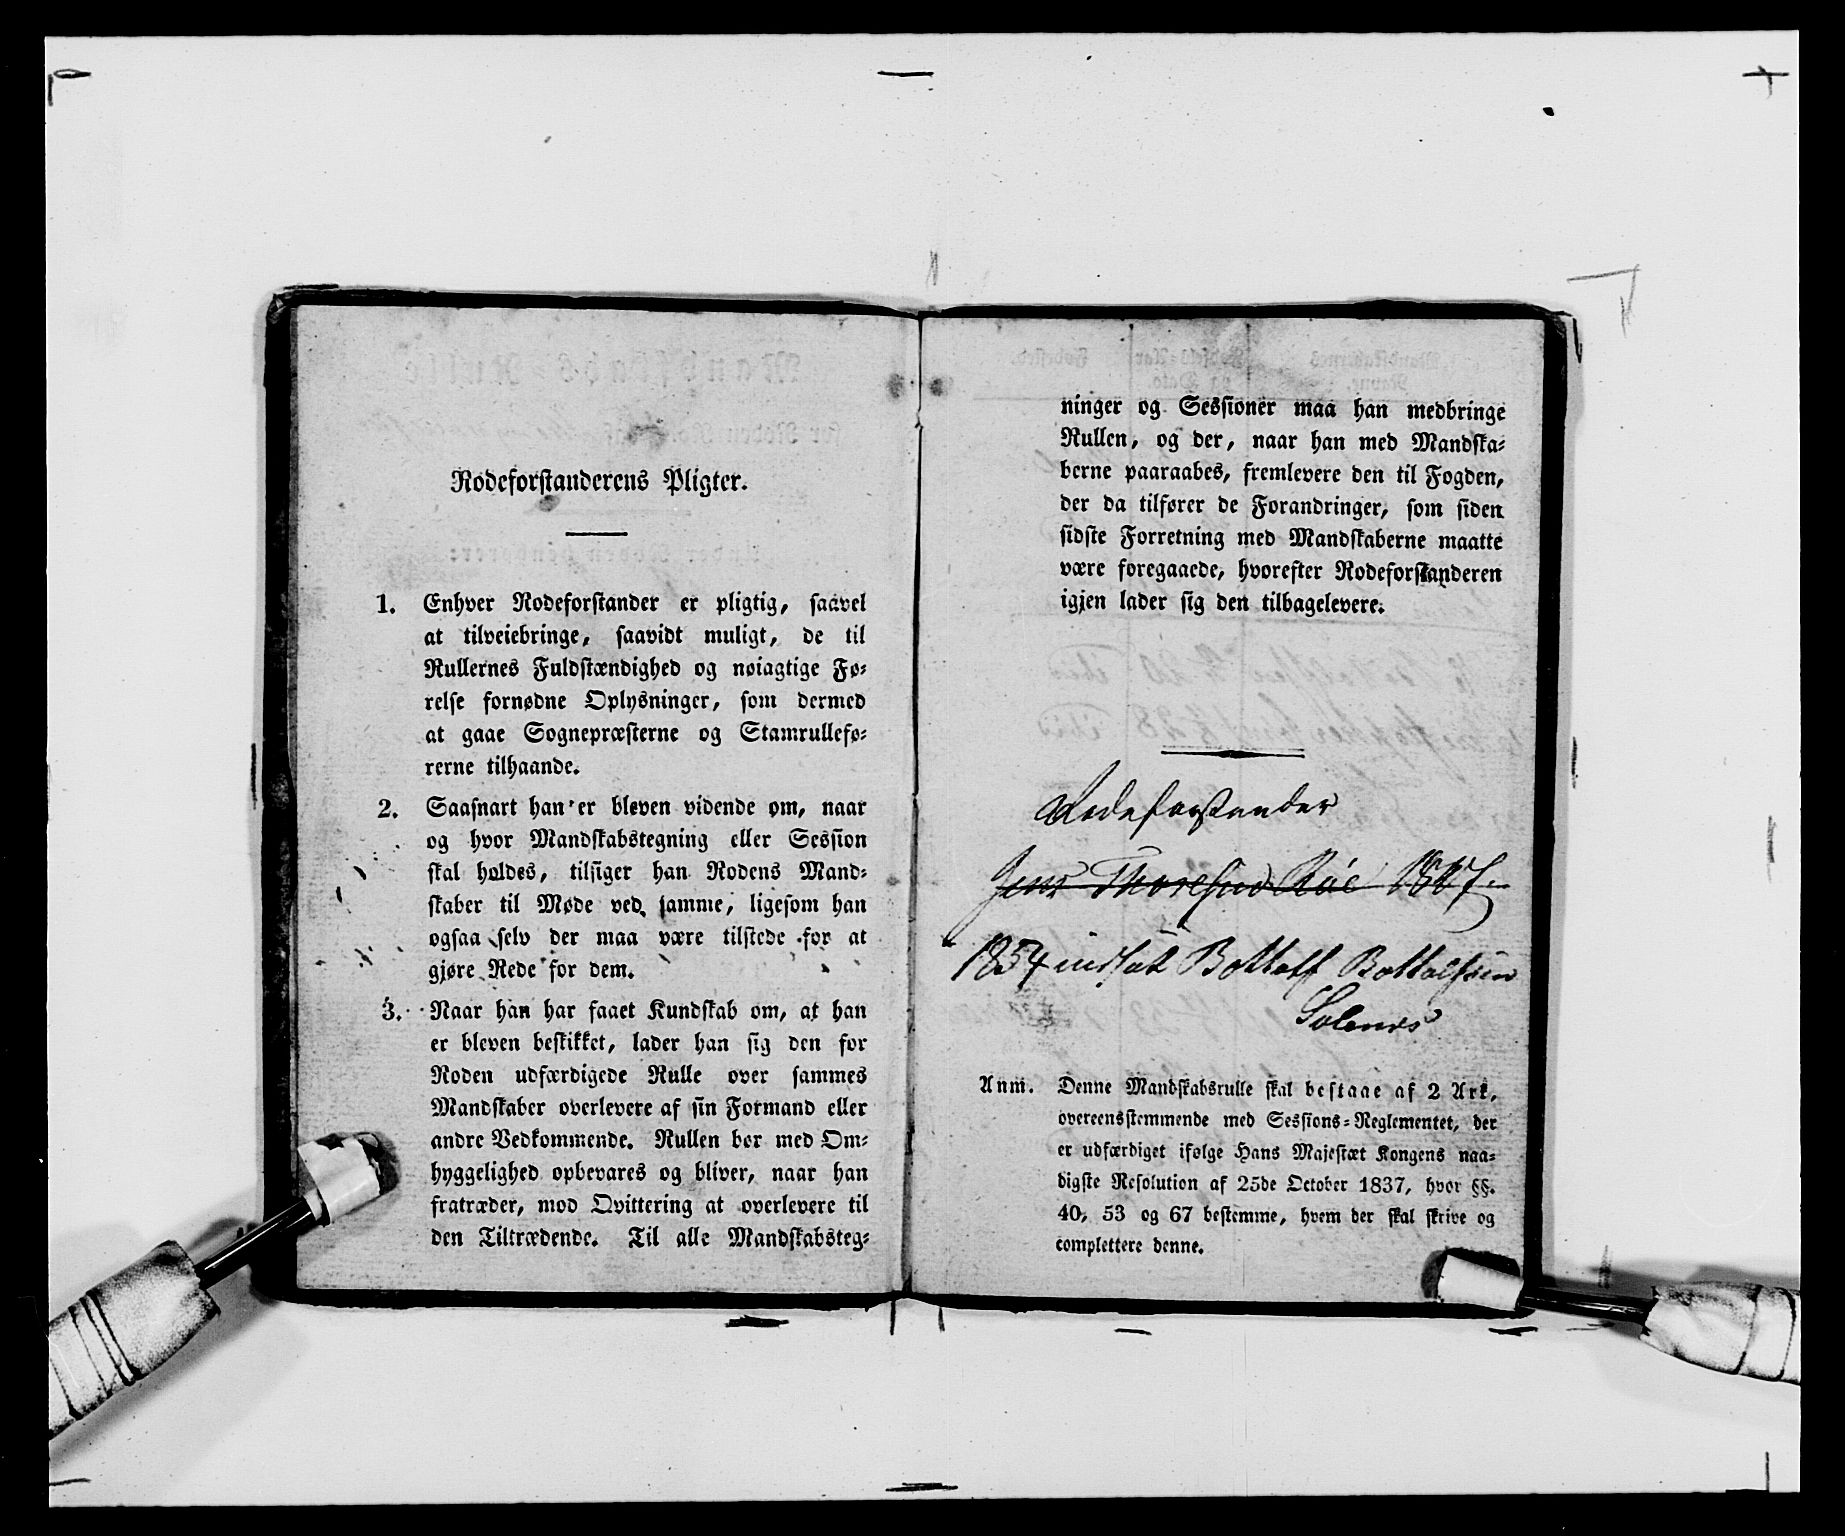 Rodeforstanderens Pligter.
1. Enhver Rodeforstander er pligtig, saavel
at tilveiebringe, saavidt muligt, de til
Rullernes Fuldstændighed og nøiagtige Fø-
relse fornødne Oplysninger, som dermed
at gaae Sognepræsterne og Stamrullefø-
rerne tilhaande.
2. Saasnart han er bleven vidende om, naar
og hvor Mandskabstegning eller Session
skal holdes, tilsiger han Rodens Mand-
skaber til Møde ved samme, ligesom han
ogsaa selv der maa være tilstede for at
gjøre Rede for dem.
3. Naar han har faaet Kundskab om, at han
er bleven beskikket, lader han sig den for
Roden udfærdigede Rulle over sammes
Mandskaber overlevere af sin Formand eller
andre Vedkommende. Rullen bør med Om-
hyggelighed opbevares og bliver, naar han
fratræder, mod Qvittering at overlevere til
den Tiltrædende. Til alle Mandskabsteg-
ninger og Sessioner maa han medbringe
Rullen, og der, naar han med Mandska-
berne paaraabes, fremlevere den til Fogden,
der da tilfører de Forandringer, som siden
sidste Forretning med Mandskaberne maatte
være foregaaede, hvorefter Rodeforstanderen
igjen lader sig den tilbagelevere.
Rodeforstander
Jens Thoresen Röe
1854 indsat Bottolf Bottolfsen
Solenæs
Anm. Denne Mandskabsrulle skal bestaae af 2 Ark,
overeensstemmende med Sessions-Reglementet, der
er udfærdiget ifølge Hans Majestæt Kongens naa-
digste Resolution af 25de October 1837, hvor §§.
40, 53 og 67 bestemme, hvem der skal skrive og
complettere denne.